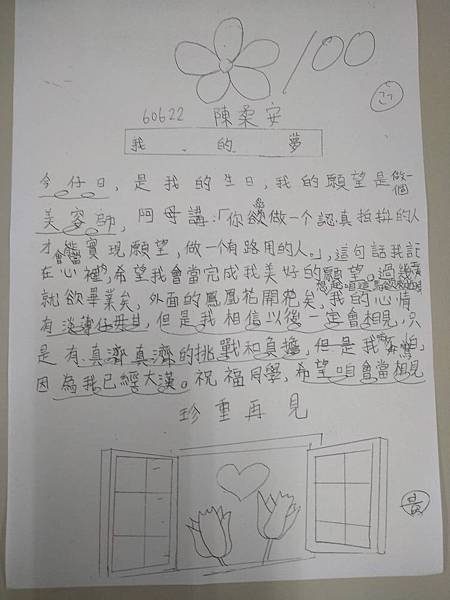 100
60622 陳柔安
我的夢
今仔日，是我的生日，我的願望是做一個
美容師，阿母講：「你欲做一个認真拍拚的人
才會當實現願望，做一个有路用的人。」，這句話我記
在心裡，希望我會當完成我美好的願望。過幾工
就欲畢業矣，外面的鳳凰花開花矣，我的心情
有淡薄仔毋甘，但是我相信以後一定會相見，只
是有真濟真濟的挑戰和負擔，但是我毋怕，
因為我已經大漢。祝福同學，希望咱會當相見
珍重再見